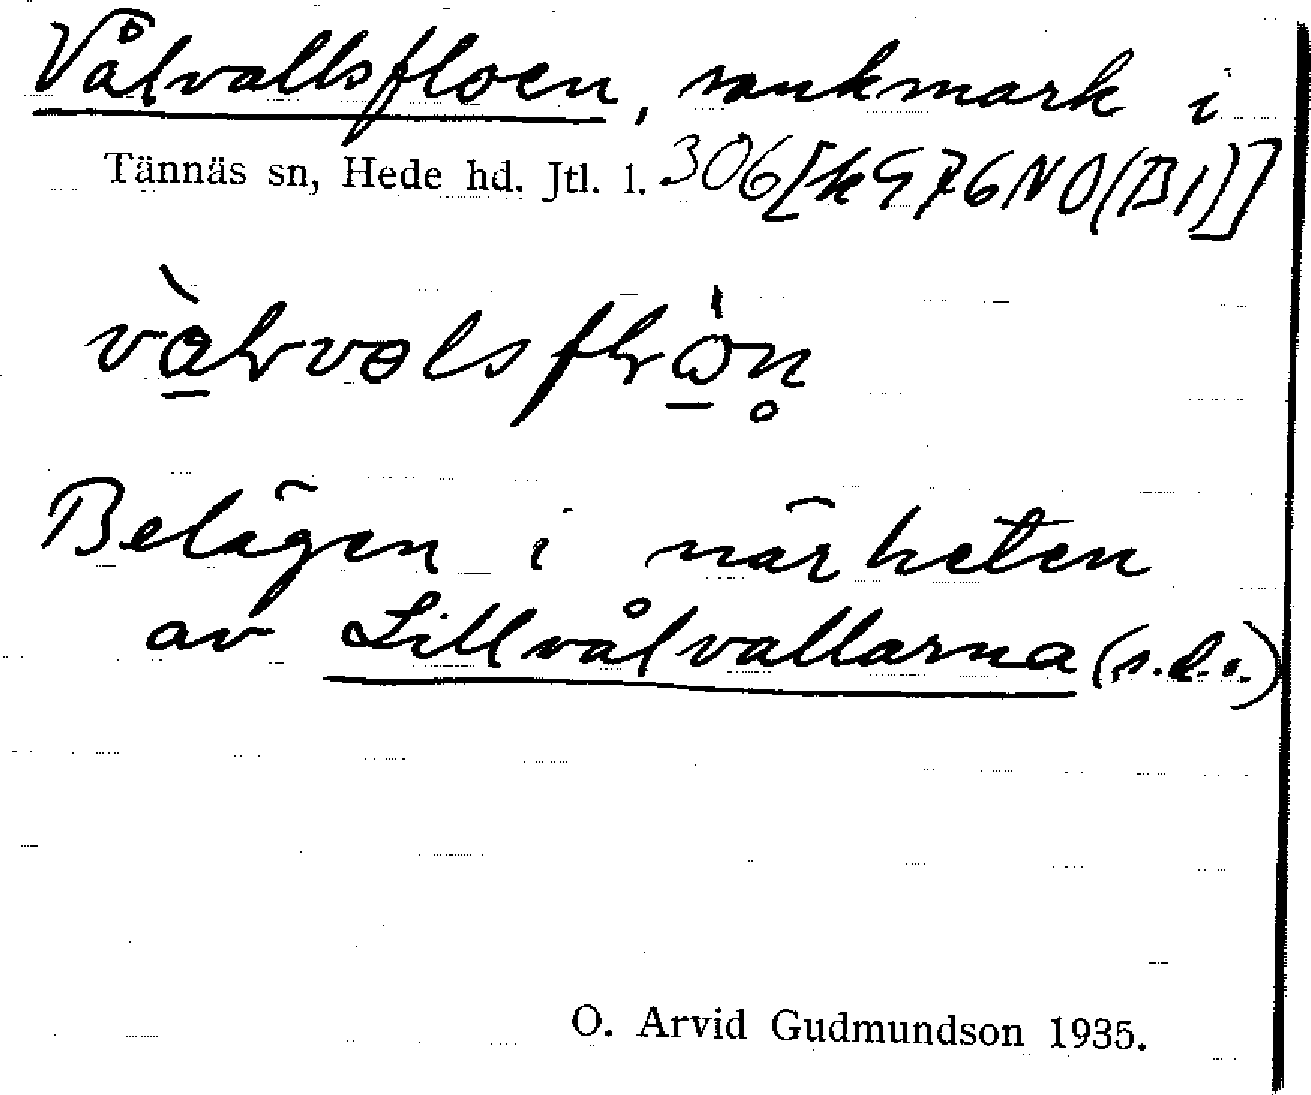 Vålvallsfloen, sankmark i
Tännäs sn, Hede hd. Jtl. l. 306[kG76NO(B1)]
Belägen i närheten
av Lillvålvallarna (s.d.).
O. Arvid Gudmundson 1935.